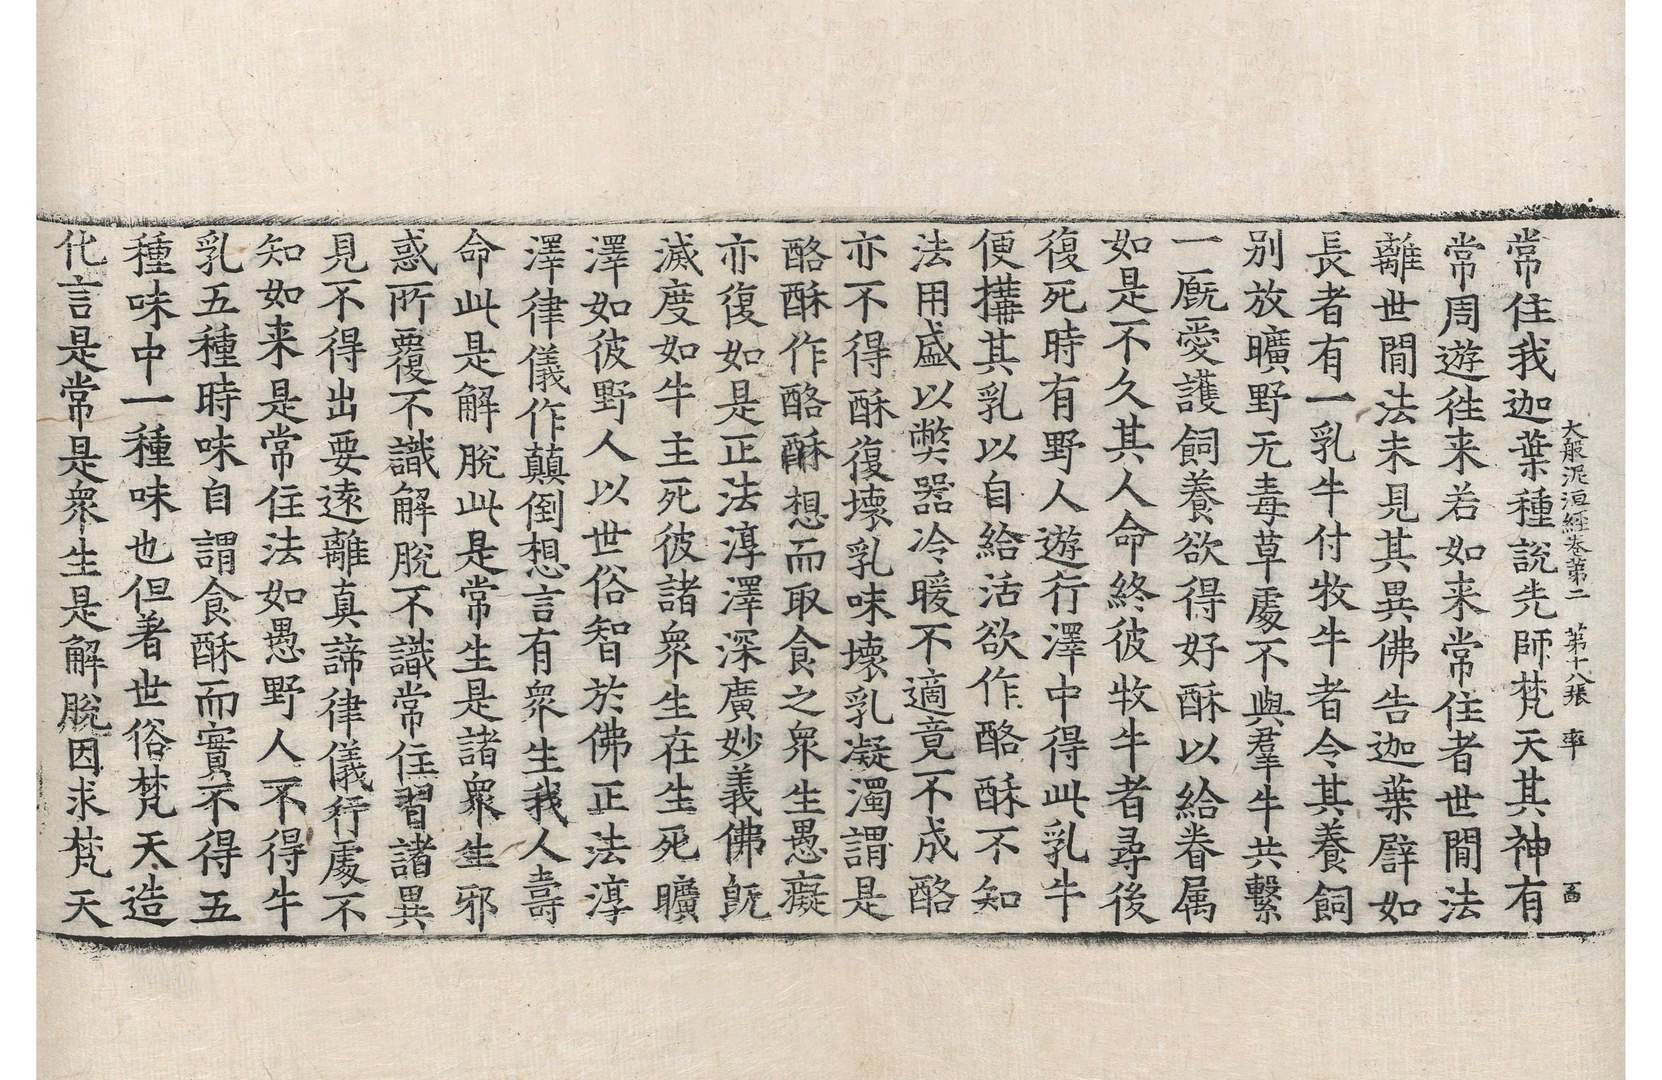 大般泥洹經卷第二　第十八張　率
百
常住我迦葉種說先師梵天其神有
常周遊徃来若如来常住者世閒法
離世閒法未見其異佛告迦葉譬如
長者有一乳牛付牧牛者令其養飼
別放曠野无毒草處不與羣牛共繫
一厩愛護飼養欲得好酥以給眷属
如是不久其人命終彼牧牛者尋後
復死時有野人遊行澤中得此乳牛
便搆其乳以自給活欲作酪酥不知
法用盛以弊器冷暖不適竟不成酪
亦不得酥復壞乳味壞乳凝濁謂是
酪酥作酪酥想而取食之衆生愚癡
亦復如是正法淳澤深廣妙義佛旣
滅度如牛主死彼諸衆生在生死曠
澤如彼野人以世俗智於佛正法淳
澤律儀作顛倒想言有衆生我人壽
命此是解脫此是常生是諸衆生邪
惑所覆不識解脫不識常住習諸異
見不得出要遠離真諦律儀行處不
知如来是常住法如愚野人不得牛
乳五種時味自謂食酥而實不得五
種味中一種味也但著世俗梵天造
化言是常是衆生是解脫因求梵天